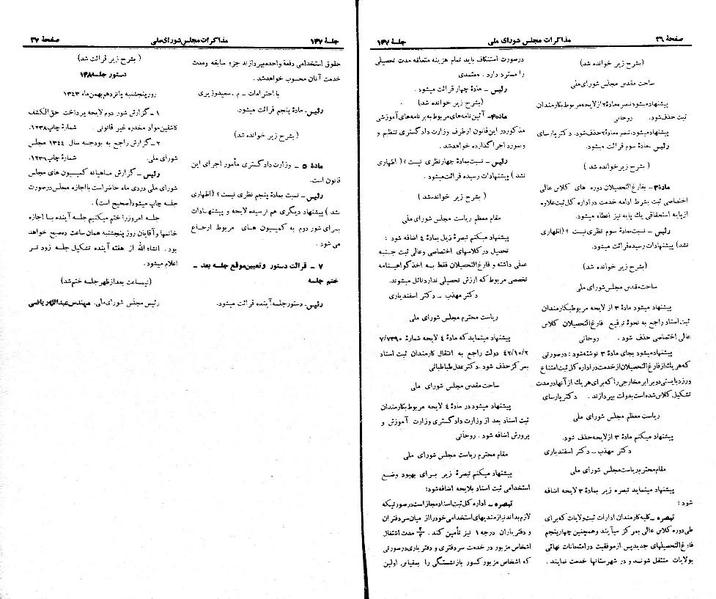 صفحهٔ ۳۶ مذاکرات مجلس شورای ملی جلسهٔ ۱۴۷
(بشرح زیر خوانده شد)
ساحت مقدس مجلس شورای ملی
پیشنهاد میشود تبصرهٔ مادهٔ ۲ از لایحهٔ مربوط بکارمندان
ثبت حذف شود. روحانی
پیشنهاد میشود، تبصره مادهٔ ۲ حذف شود. دکتر پارسای
رئیس- مادهٔ سوم قرائت میشود.
(بشرح زیر خوانده شد)
مادهٔ ۳- بفارغ التحصیلان دوره های کلاس عالی
اختصاصی ثبت بشرط ادامه خدمت در اداره کل ثبت علاوه
از پایه استحقاقی یک پایه نیز اعطاء میشود.
رئیس- نسبت بمادهٔ سوم نظری نیست؟ (اظهاری
نشد) پیشنهادات رسیده قرائت میشود.
(بشرح زیر خوانده شد)
ساحت مقدس مجلس شورای ملی
پیشنهاد میشود مادهٔ ۳ از لایحه مربوط بکارمندان
ثبت اسناد راجع به نحوهٔ ترفیع فارغ التحصیلان کلاس
عالی اختصاصی حذف شود. روحانی
پیشنهاد میشود بجای مادهٔ ۳ نوشته شود: در صورتی
که هر یک از فارغ التحصیلان از خدمت در اداره کل ثبت امتناع
ورزد بایستی دو برابر مخارجی را که برای هر یک از آنها در مدت
تشکیل کلاس شده است بدولت بپردازند. دکتر پارسای
ریاست معظم مجلس شورای ملی
پیشنهاد میکنم مادهٔ ۳ از لایحه حذف شود.
دکتر مهذب- دکتر اسفندیاری
مقام محترم ریاست مجلس شورای ملی
پیشنهاد مینماید تبصره زیر بمادهٔ ۳ لایحه اضافه
شود:
تبصره- کلیه کارمندان ادارات ثبت ولایات که برای
طی دوره کلاس عالی بمرکز میآیند و همچنین چهار پنجم
فارغ التحصیلهای جدید پس از موفقیت در امتحانات نهائی
بولایات منتقل شوند و در شهرستانها خدمت نمایند.
در صورت استنکاف باید تمام هزینه متعلقه مدت تحصیلی
را مسترد دارد. معتمدی
رئیس- مادهٔ چهار قرائت میشود.
(بشرح زیر خوانده شد)
مادهٔ ۴- آئین نامه های مربوط به برنامه های آموزشی
مذکور در این قانون از طرف وزارت دادگستری تنظیم و
بمورد اجرا گذارده خواهد شد.
رئیس- نسبت بمادهٔ چهار نظری نیست؟ (اظهاری
نشد) پیشنهادات رسیده قرائت میشود.
(بشرح زیر خوانده شد)
مقام معظم ریاست مجلس شورای ملی
پیشنهاد میکنم تبصرهٔ ذیل بمادهٔ ۴ اضافه شود:
تحصیل در کلاسهای اختصاصی و عالی ثبت جنبه
صنفی داشته و فارغ التحصیلان فقط به اخذ گواهینامه
تخصصی مربوط که ارزش تحصیلی ندارد نائل میشوند.
دکتر مهذب- دکتر اسفندیاری
ریاست محترم مجلس شورای ملی
پیشنهاد مینماید که مادهٔ ۴ لایحه شمارهٔ ۷/۷۳۹۰
۴۲/۱۰/۲ دولت راجع به انتقال کارمندان ثبت اسناد
بمرکز حذف شود. دکتر عدل طباطبائی
ساحت مقدس مجلس شورای ملی
پیشنهاد میشود در مادهٔ ۴ لایحه مربوط بکارمندان
ثبت اسناد بعد از وزارت دادگستری وزارت آموزش و
پرورش اضافه شود. روحانی
مقام محترم ریاست مجلس شورای ملی
پیشنهاد میکنم تبصرهٔ زیر برای بهبود وضع
استخدامی ثبت اسناد بلایحه اضافه شود:
تبصره- اداره کل ثبت اسناد مجاز است در صورتیکه
لازم بداند نیازمندیهای استخدامی خود را از میان سردفتران
و دفتریاران درجه ۱ نیز تأمین کند. مدت اشتغال
اشخاص مزبور در خدمت سردفتری و دفتریاری در صورتی
که اشخاص مزبور کسور بازنشستگی را بمقیاس اولین
جلسهٔ ۱۴۷ مذاکرات مجلس شورای ملی صفحهٔ ۳۷
حقوق استخدامی دفعة واحده بپردازند جزء سابقه و مدت
خدمت آنان محسوب خواهد شد.
با احترامات- م. سعید وزیری
رئیس- مادهٔ پنجم قرائت میشود.
(بشرح زیر خوانده شد)
مادهٔ ۵- وزارت دادگستری مأمور اجرای این
قانون است.
رئیس- نسبت بمادهٔ پنجم نظری نیست؟ (اظهاری
نشد) پیشنهاد دیگری هم نرسیده لایحه و پیشنهادات
برای شور دوم به کمیسیون های مربوط ارجاع
می شود.
۷- قرائت دستور و تعیین موقع جلسه بعد-
ختم جلسه
رئیس- دستور جلسه آینده قرائت میشود.
(بشرح زیر قرائت شد)
دستور جلسه ۱۴۸
روز پنجشنبه پانزدهم بهمن ماه ۱۳۴۳
۱- گزارش شور دوم لایحه پرداخت حق الکشف
کاشفین مواد مخدره غیر قانونی. شمارهٔ چاپ ۱۲۳۸
۲- گزارش راجع به بودجه سال ۱۳۴۴ مجلس
شورای ملی. شمارهٔ چاپ ۱۲۳۶
رئیس- گزارش ماهیانه کمیسیون های مجلس
شورای ملی در دی ماه حاضر است با اجازه مجلس در صورت
جلسه چاپ میشود (صحیح است).
جلسه امروز را ختم میکنیم جلسه آینده با اجازه
خانمها و آقایان روز پنجشنبه همان ساعت و صبح خواهد
بود. انشاء الله از هفته آینده تشکیل جلسه زودتر
اعلام میشود.
(نیمساعت بعد از ظهر جلسه ختم شد)
رئیس مجلس شورای ملی. مهندس عبدالله ریاضی